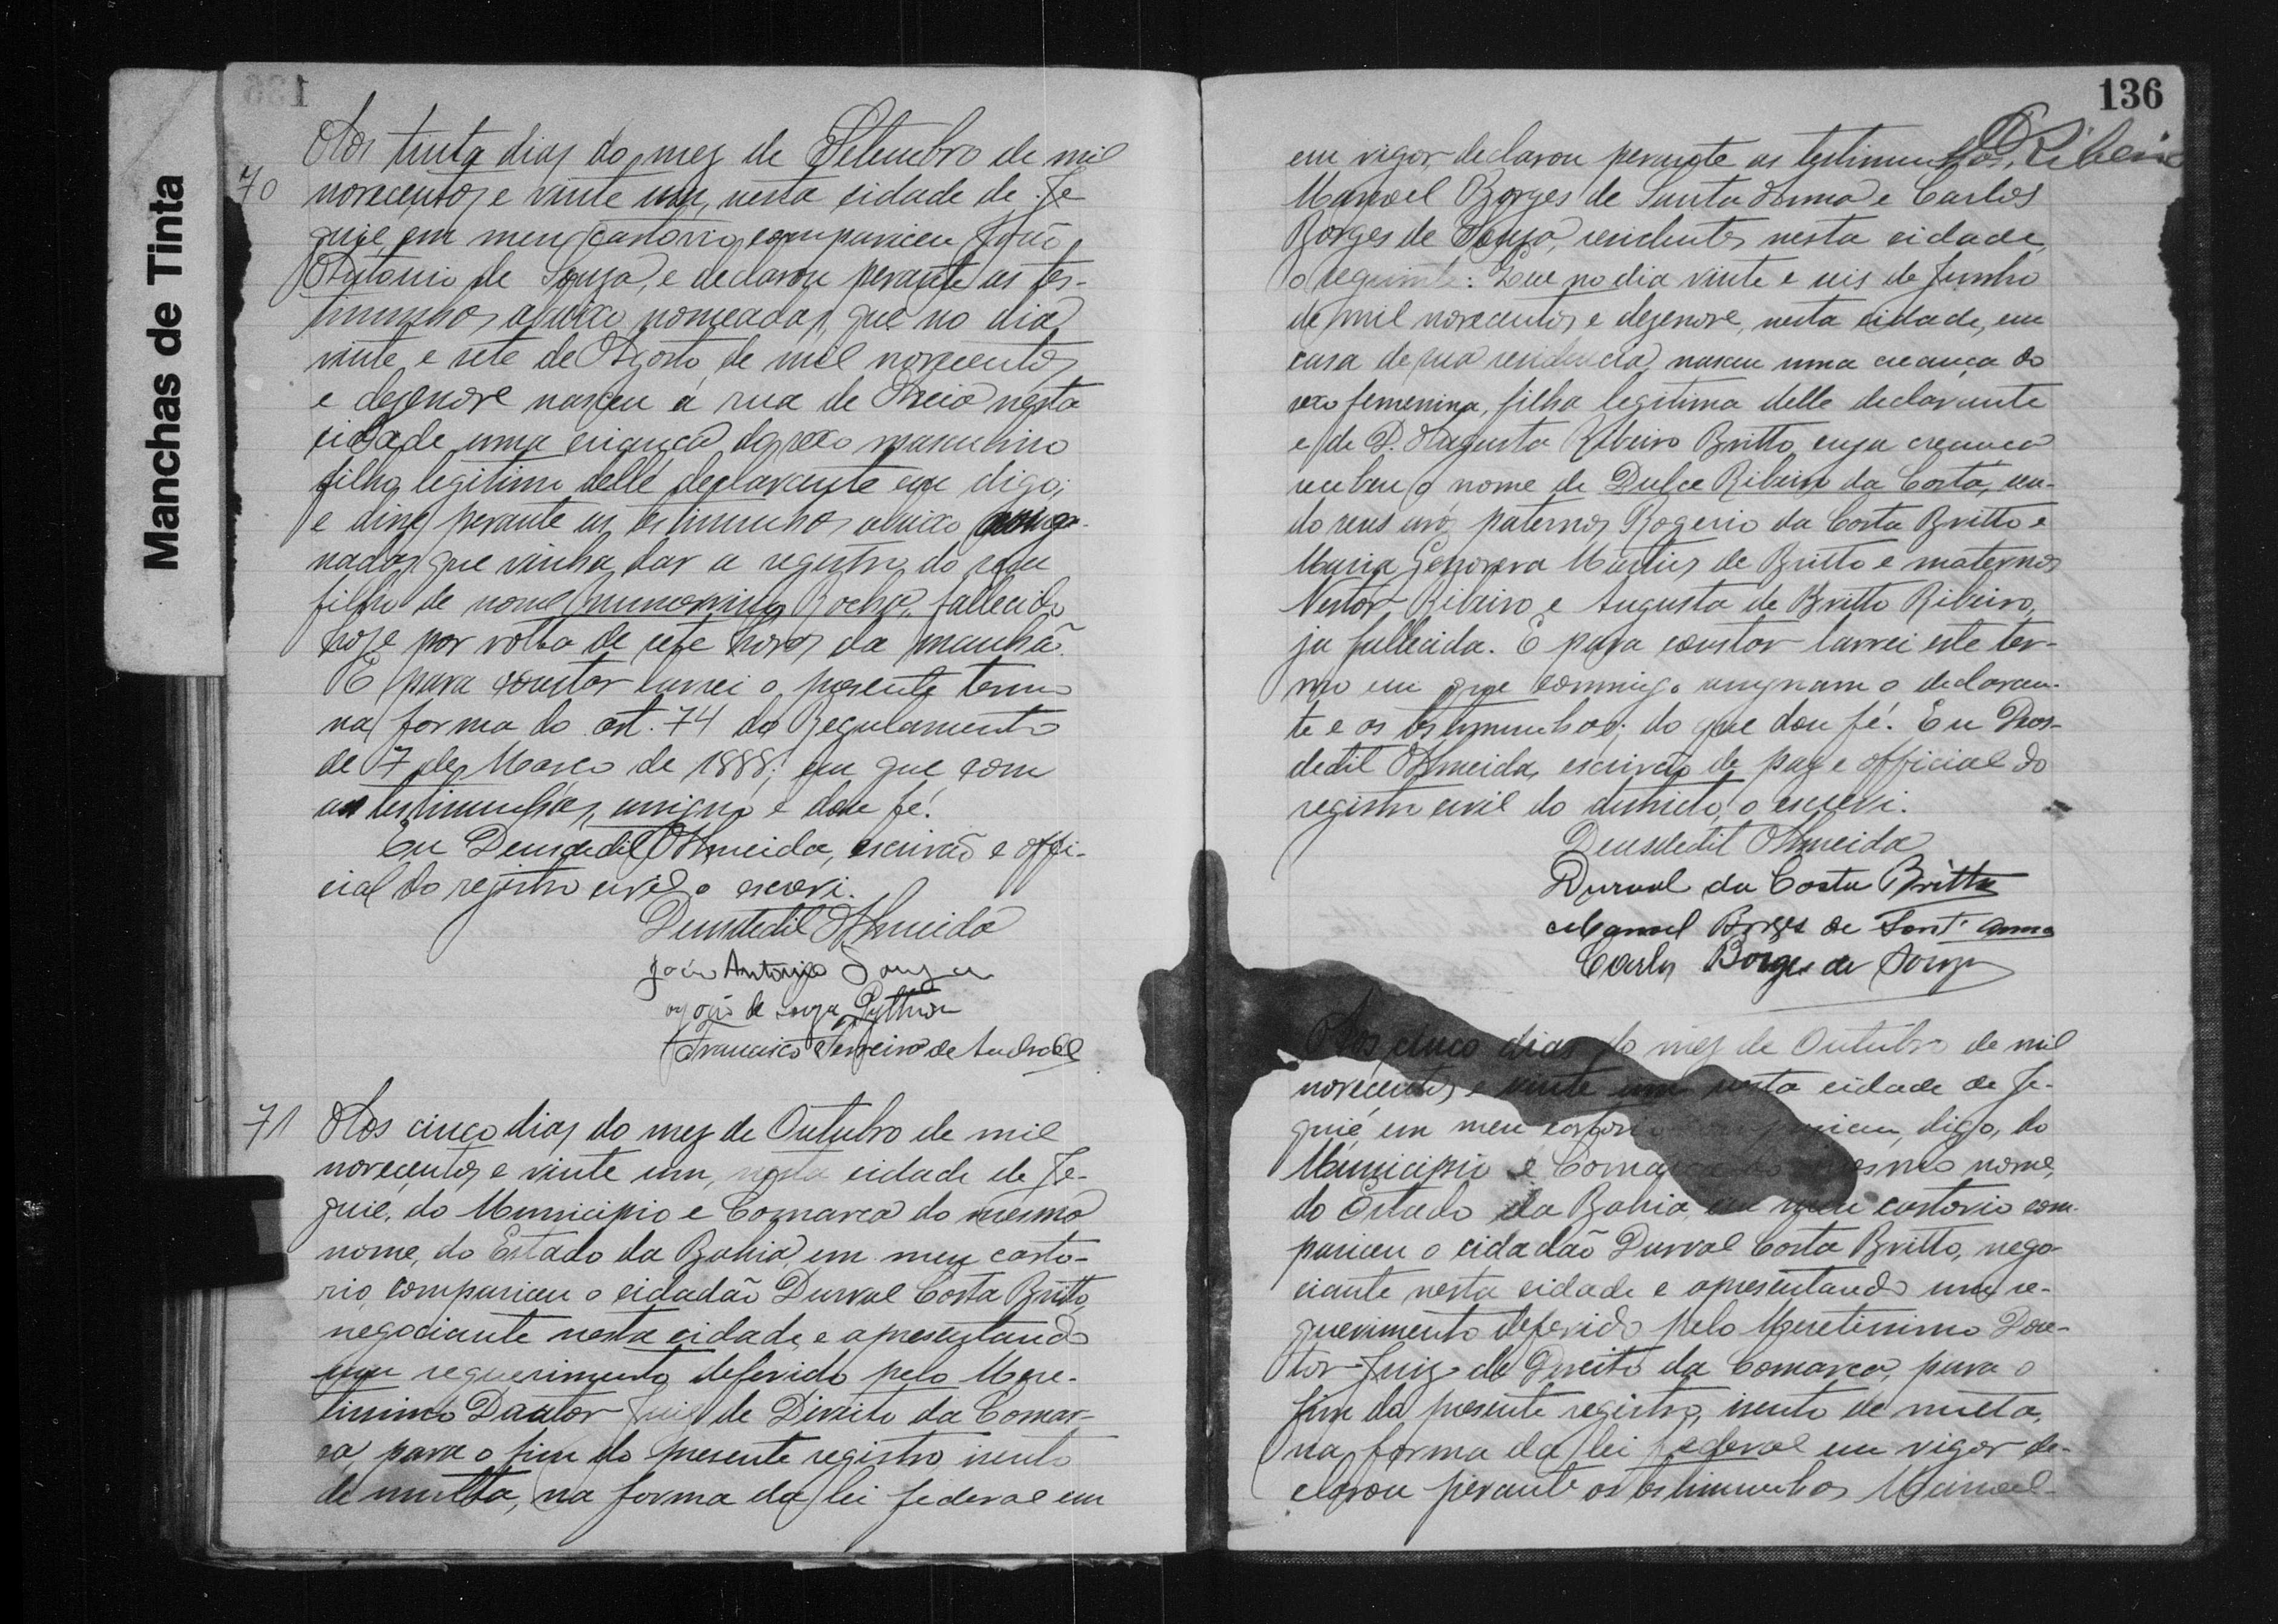 Manchas de Tinta
136
70
Aos trinta dias do mez de Setembro de mil
novecentos e vinte um, nesta cidade de Je-
quié em meu cartorio compareceu João
Antonio de Souza, e declarou perante as tes-
timunhas abaixo nomeadas, que no dia
vinte e sete de Agosto de mil novecentos
e dezenove nasceu á rua de nesta
cidade uma criança do sexo masculino
filho legitimo delle declarante em digo;
e disse perante as testimunhas abaixo
nadas que vinha dar a registro do seu
filho de nome Rocha, fallecido
hoje por volta de sete horas da manhã.
E para constar lavrei o presente termo
na forma do art. 74 do Regulamento
de 7 de Março de 1888; em que com
as testimunhas, assigno e dou fé.
Eu Deusdedit Almeida, escrivão e offi-
cial do registro civil o escrevi.
Deusdedit Almeida
João Antonio Souza
João de Souza
Francisco Ferreira de Andrade
71
Aos cinco dias do mez de Outubro de mil
novecentos e vinte um, nesta cidade de Je-
quié, do Municipio e Comarca do mesmo
nome, do Estado da Bahia, em meu carto-
rio, compareceu o cidadão Durval Costa Britto,
negociante nesta cidade, e apresentando
um requerimento deferido pelo Mere-
tissimo Doutor Juiz de Direito da Comar-
ca, para o fim do presente registro isento
de multa, na forma da lei federal em
136
D. Ribeiro
em vigor, declarou perante as testimunhas,
Manoel Borges de Santa Anna e Carlos
Borges de Souza, residentes nesta cidade,
o seguinte: Que no dia vinte e seis de Junho
de mil novecentos e dezenove, nesta cidade, em
casa de sua residencia, nasceu uma creança do
sexo femenina, filha legitima delle declarante
e de D. Augusta Ribeiro Britto, cuja creança
recebeu o nome de Dulce Ribeiro da Costa, sen-
do seus avós paternos Rogerio da Costa Britto e
Maria Genoveva Martins de Britto e maternos
Nestor Ribeiro e Augusta de Britto Ribeiro,
ja fallecida. E para constar lavrei este ter-
mo em que commigo assignam o declaran-
te e as testimunhas; do que dou fé. Eu Deos-
dedit Almeida, escrivão de paz e official do
registro civil do districto, o escrevi.
Deusdedit Almeida
Durval da Costa Britto
Manoel Borges de Sant'Anna
Carlos Borges de Souza
Aos cinco dias do mez de Outubro de mil
novecentos e vinte um nesta cidade de Je-
quié, em meu cartorio compareceu, digo, do
Municipio e Comarca do mesmo nome,
do Estado da Bahia, em meu cartorio com-
pareceu o cidadão Durval Costa Britto, nego-
ciante nesta cidade e apresentando um re-
querimento deferido pelo Meretissimo Dou-
tor Juiz de Direito da Comarca, para o
fim da presente registro, isento de multa,
na forma da lei federal em vigor de-
clarou perante as testimunhas Manoel